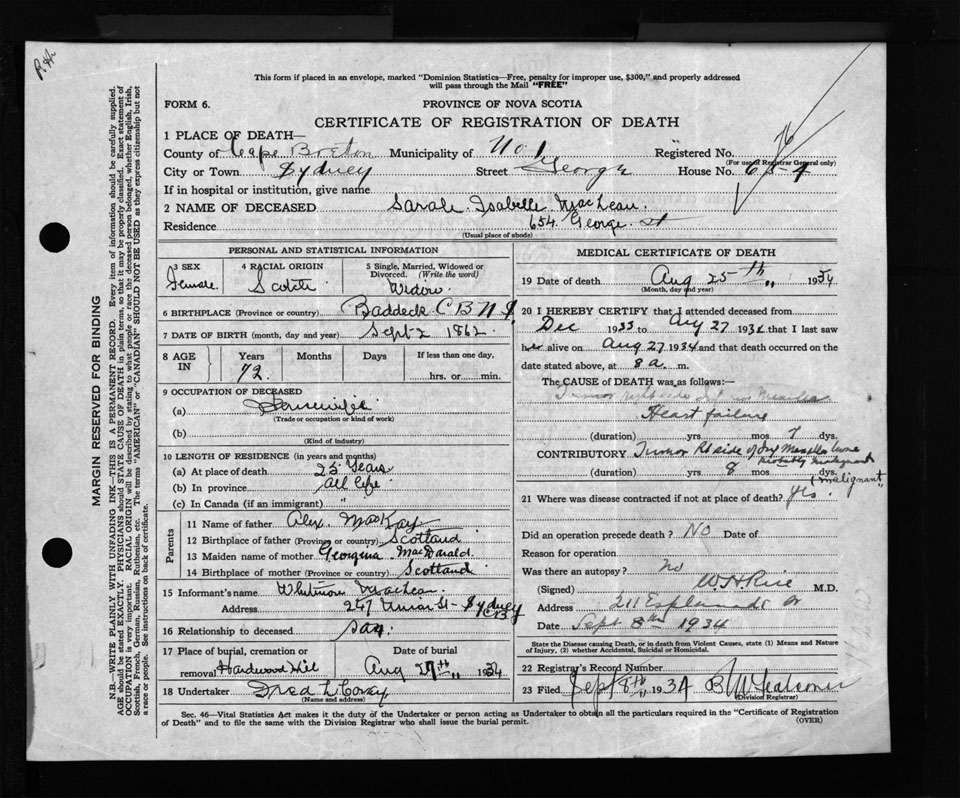 R.H.
This form if placed in an envelope, marked "Dominion Statistics—Free, penalty for improper use, $300," and properly addressed
will pass through the Mail "FREE"
FORM 6.
PROVINCE OF NOVA SCOTIA
CERTIFICATE OF REGISTRATION OF DEATH
1 PLACE OF DEATH—
County or Cape Breton Municipality of No 1 Registered No. 76
(For use of Registrar General only)
City or Town Sydney Street George House No. 654
If in hospital or institution, give name
2 NAME OF DECEASED Sarah Isabelle MacLean.
Residence 654 George St
(Usual place of abode)
PERSONAL AND STATISTICAL INFORMATION
3 SEX Female
4 RACIAL ORIGIN Scotch
5 Single, Married, Widowed or Divorced. (Write the word) Widow
6 BIRTHPLACE (Province or country) Baddeck C B N S
7 DATE OF BIRTH (month, day and year) Sept 2 1862
8 AGE IN Years Months Days If less than one day,
72 hrs. or min.
9 OCCUPATION OF DECEASED
(a) Housewife
(Trade or occupation or kind of work)
(b)
(Kind of industry)
10 LENGTH OF RESIDENCE (in years and months)
(a) At place of death 25 Years
(b) In province All life
(c) In Canada (if an immigrant) "
Parents
11 Name of father Alex. MacKay
12 Birthplace of father (Province or country) Scotland
13 Maiden name of mother Georgina MacDonald
14 Birthplace of mother (Province or country) Scotland
15 Informant's name Whitmore MacLean
Address 247 Union St- Sydney CB
16 Relationship to deceased son
17 Place of burial, cremation or removal Hardwood Hill
Date of burial Aug 27th " 1934
18 Undertaker Fred L Corey
(Name and address)
MEDICAL CERTIFICATE OF DEATH
19 Date of death Aug 25th " 1934
(Month, day and year)
20 I HEREBY CERTIFY that I attended deceased from
Dec 1933 to Aug 27 1934 that I last saw
her alive on Aug 27 1934 and that death occurred on the
date stated above, at 8 a. m.
The CAUSE of DEATH was as follows:—
Heart failure
(duration) yrs mos 7 dys.
CONTRIBUTORY Tumor R side of
probably malignant
(duration) yrs 8 mos dys.
"malignant"
21 Where was disease contracted if not at place of death? yes.
Did an operation precede death? No Date of
Reason for operation
Was there an autopsy? no
(Signed) W H Rice M.D.
Address 211 Esplanade
Date Sept 8th 1934
State the Disease causing Death, or in death from Violent Causes, state (1) Means and Nature
of Injury, (2) whether Accidental, Suicidal or Homicidal.
22 Registrar's Record Number
23 Filed Sept 8th 1934
(Division Registrar)
Sec. 46—Vital Statistics Act makes it the duty of the Undertaker or person acting as Undertaker to obtain all the particulars required in the "Certificate of Registration
of Death" and to file the same with the Division Registrar who shall issue the burial permit.
(OVER)
MARGIN RESERVED FOR BINDING
N.B.—WRITE PLAINLY WITH UNFADING INK—THIS IS A PERMANENT RECORD. Every item of information should be carefully supplied.
AGE should be stated EXACTLY. PHYSICIANS should STATE CAUSE OF DEATH in plain terms, so that it may be properly classified. Exact statement of
OCCUPATION is very important. RACIAL ORIGIN will be described by stating to what people or race the deceased person belonged, whether English, Irish,
Scottish, French, German, Russian, Ruthenian, etc. The terms "AMERICAN" or "CANADIAN" SHOULD NOT BE USED as they express citizenship but not
a race or people. See instructions on back of certificate.